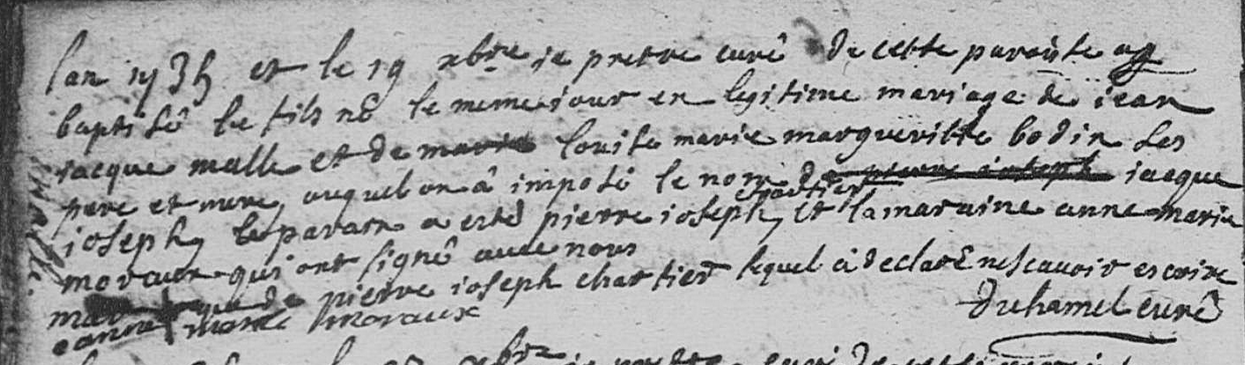 lan 1735 et le 19 xbre je pretre curé de cette paroisse ay
baptisé le fils né le meme jour en legitime mariage de jean
jacque malle et de marie louise marie margueritte bodin ses
pere et mere, auquel on a imposé le nom de pierre joseph jacque
joseph, le parain a esté pierre joseph chartier, et la maraine anne marie
moraux qui ont signé avec nous
marque de pierre joseph chartier lequel a declaré ne scavoir escrire
anne marie moraux
Duhamel curé